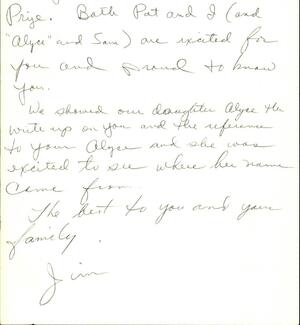 Prize. Both Pat and I (and
"Alyce" and Sam) are excited for
you and proud to know
you.
We showed our daughter Alyce the
write up on you and the reference
to your Alyce and she was
excited to see where her name
came from.
The best to you and your
family.
Jim